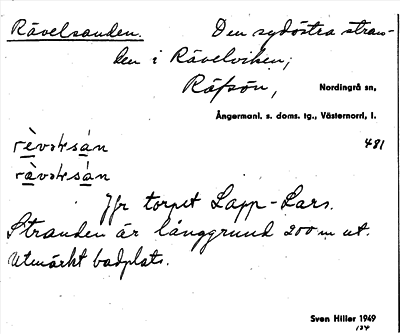 Rävelsanden. Den sydöstra stran-
den i Rävelviken;
Räfsön, Nordingrå sn,
Ångermanl. s. doms. tg., Västernorrl. l.
481
Jfr torpet Lapp-Lars.
Stranden är långgrund 200 m ut.
Utmärkt badplats.
Sven Hiller 1949
134